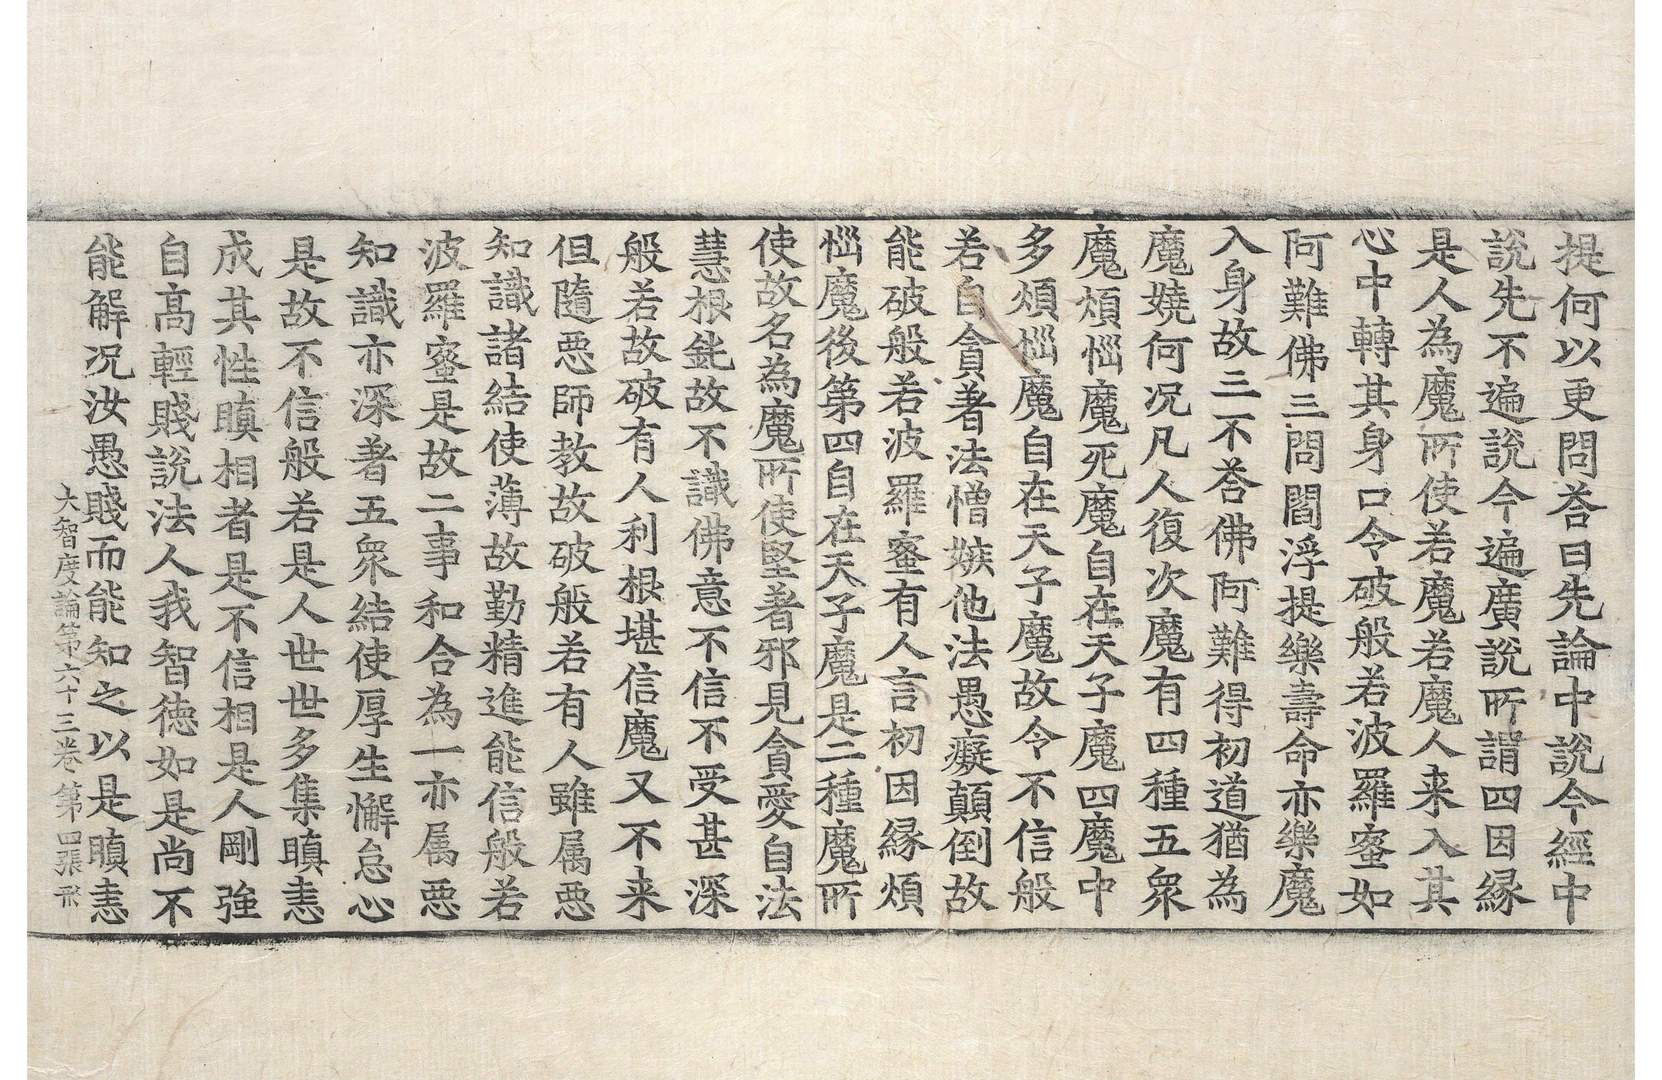 提何以更問荅曰先論中說今經中
說先不遍說今遍廣說所謂四因縁
是人為魔所使若魔若魔人来入其
心中轉其身口令破般若波羅蜜如
阿難佛三問閻浮提樂壽命亦樂魔
入身故三不荅佛阿難得初道猶為
魔嬈何况凡人復次魔有四種五衆
魔煩惱魔死魔自在天子魔四魔中
多煩惱魔自在天子魔故令不信般
若自貪著法憎嫉他法愚癡顛倒故
能破般若波羅蜜有人言初因縁煩
惱魔後第四自在天子魔是二種魔所
使故名為魔所使堅著邪見貪愛自法
慧根鈍故不識佛意不信不受甚深
般若故破有人利根堪信魔又不来
但隨惡師教故破般若有人雖属惡
知識諸結使薄故勤精進能信般若
波羅蜜是故二事和合為一亦属惡
知識亦深著五衆結使厚生懈怠心
是故不信般若是人世世多集瞋恚
成其性瞋相者是不信相是人剛強
自高輕賤說法人我智德如是尚不
能解况汝愚賤而能知之以是瞋恚
大智度論第六十三卷 第四張 夜